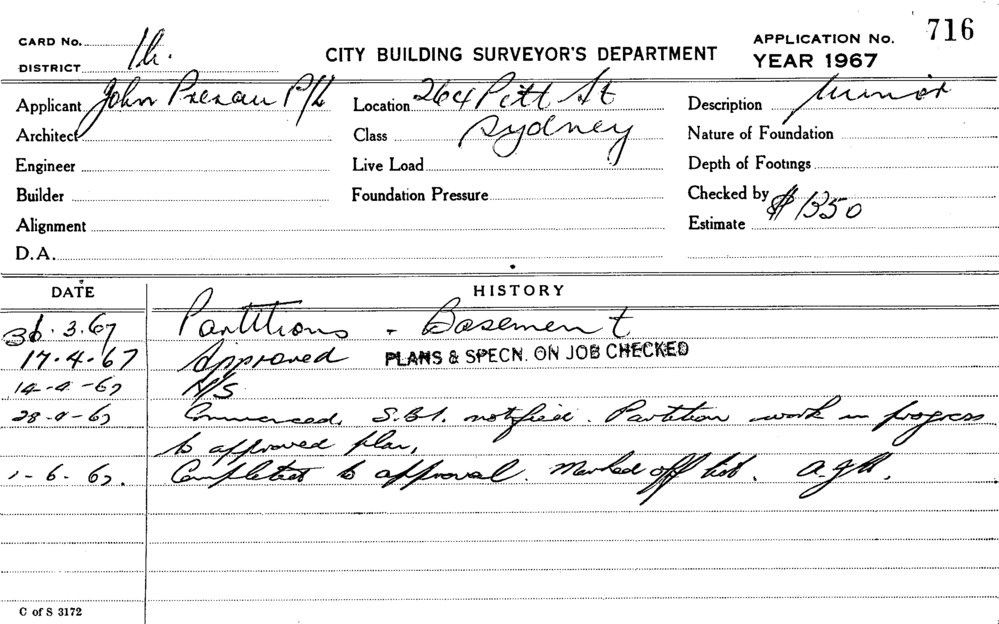 716
CARD No.
CITY BUILDING SURVEYOR'S DEPARTMENT
APPLICATION No.
DISTRICT 1h.
YEAR 1967
Applicant John P/L
Location 264 Pitt St
Description Minor
Architect
Class Sydney
Nature of Foundation
Engineer
Live Load
Depth of Footings
Builder
Foundation Pressure
Checked by
Alignment
Estimate $1350
D.A.
DATE HISTORY
31.3.67 Partitions - Basement
17.4.67 Approved PLANS & SPECN. ON JOB CHECKED
14-4-67 N/S
28-4-67 Commenced, S.B.I. notified. Partition work in progress
to approved plan.
1-6-67. Completed to approval. Marked off list.
C of S 3172